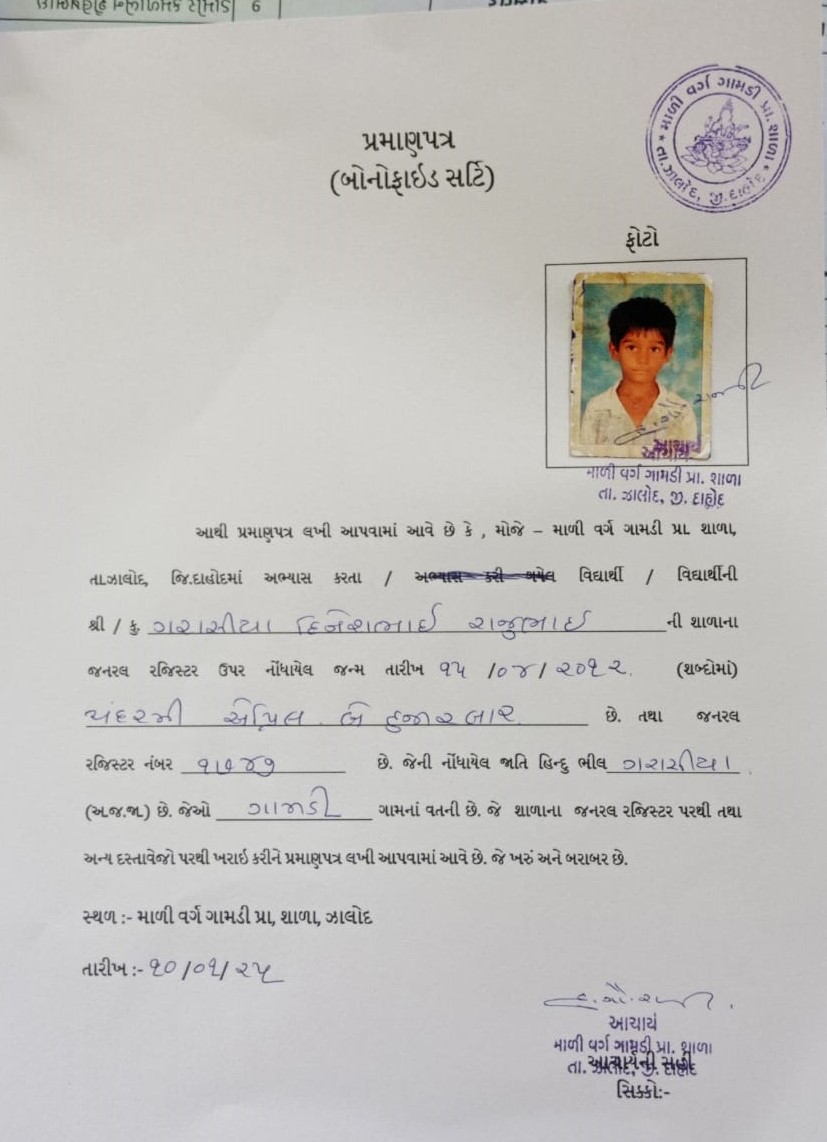 પ્રમાણપત્ર
(બોનોફાઇડ સર્ટિ)
માળી વર્ગ ગામડી પ્રા. શાળા
તા. ઝાલોદ, જી. દાહોદ
ફોટો
આચાર્ય
માળી વર્ગ ગામડી પ્રા. શાળા
તા. ઝાલોદ, જી. દાહોદ
આથી પ્રમાણપત્ર લખી આપવામાં આવે છે કે , મોજે – માળી વર્ગ ગામડી પ્રા. શાળા,
તા.ઝાલોદ, જિ.દાહોદમાં અભ્યાસ કરતા / અભ્યાસ કરી ગયેલ વિદ્યાર્થી / વિદ્યાર્થીની
શ્રી / કુ. ગરાસીયા દિનેશભાઈ રાજુભાઈ ની શાળાના
જનરલ રજિસ્ટર ઉપર નોંધાયેલ જન્મ તારીખ ૧૫ /૦૪/ ૨૦૧૨. (શબ્દોમાં)
પંદરમી એપ્રિલ બે હજાર બાર છે. તથા જનરલ
રજિસ્ટર નંબર ૧૭૪૭ છે. જેની નોંધાયેલ જાતિ હિન્દુ ભીલ ગરાસીયા
(અ.જ.જા.) છે. જેઓ ગામડી ગામનાં વતની છે. જે શાળાના જનરલ રજિસ્ટર પરથી તથા
અન્ય દસ્તાવેજો પરથી ખરાઇ કરીને પ્રમાણપત્ર લખી આપવામાં આવે છે. જે ખરું અને બરાબર છે.
સ્થળ :- માળી વર્ગ ગામડી પ્રા, શાળા, ઝાલોદ
તારીખ :- ૧૦/૦૧/૨૫
આચાર્ય
માળી વર્ગ ગામડી પ્રા. શાળા
તા. ઝાલોદ, જી. દાહોદ
આચાર્યની સહી
સિક્કો:-